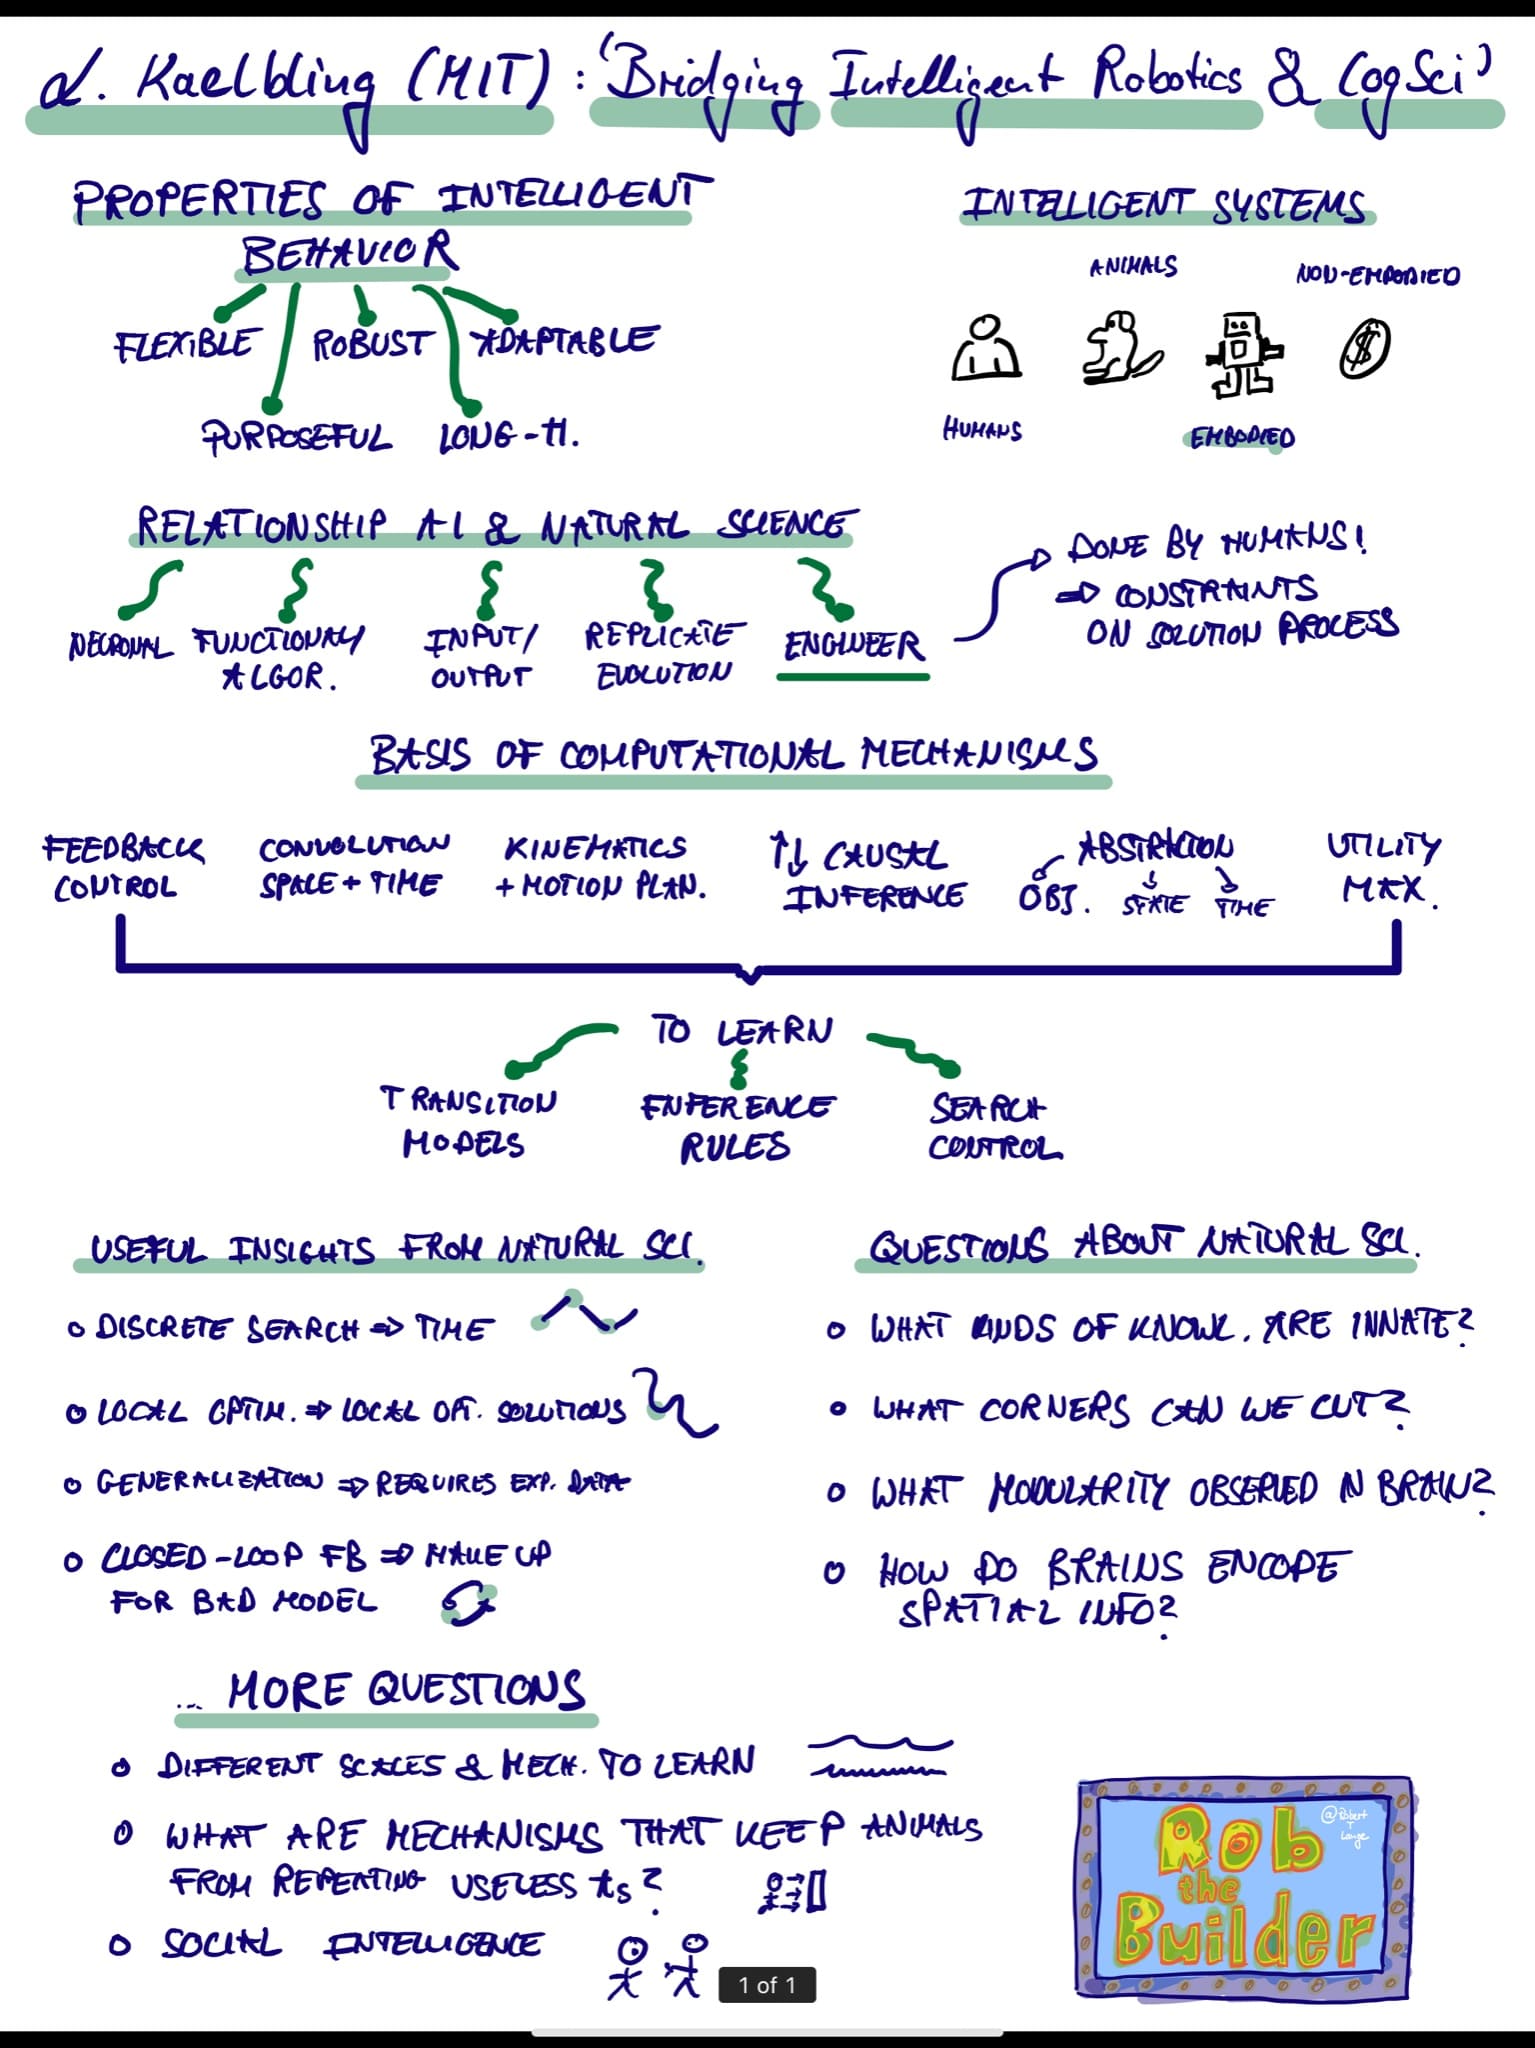 L. Kaelbling (MIT): 'Bridging Intelligent Robotics & CogSci'
PROPERTIES OF INTELLIGENT
BEHAVIOR
FLEXIBLE ROBUST ADAPTABLE
PURPOSEFUL LONG-H.
INTELLIGENT SYSTEMS
ANIMALS NON-EMBODIED
$
HUMANS EMBODIED
RELATIONSHIP AI & NATURAL SCIENCE
NEURONAL FUNCTIONAL/ INPUT/ REPLICATE ENGINEER
ALGOR. OUTPUT EVOLUTION
DONE BY HUMANS!
⇒ CONSTRAINTS
ON SOLUTION PROCESS
BASIS OF COMPUTATIONAL MECHANISMS
FEEDBACK CONVOLUTION KINEMATICS ↑↓ CAUSAL ABSTRACTION UTILITY
CONTROL SPACE + TIME + MOTION PLAN. INFERENCE OBJ. STATE TIME MAX.
TO LEARN
TRANSITION INFERENCE SEARCH
MODELS RULES CONTROL
USEFUL INSIGHTS FROM NATURAL SCI.
DISCRETE SEARCH ⇒ TIME
LOCAL OPTIM. ⇒ LOCAL OPT. SOLUTIONS
GENERALIZATION ⇒ REQUIRES EXP. DATA
CLOSED-LOOP FB ⇒ MAKE UP
FOR BAD MODEL
QUESTIONS ABOUT NATURAL SCI.
WHAT KINDS OF KNOWL. ARE INNATE?
WHAT CORNERS CAN WE CUT?
WHAT MODULARITY OBSERVED IN BRAIN?
HOW DO BRAINS ENCODE
SPATIAL INFO?
... MORE QUESTIONS
DIFFERENT SCALES & MECH. TO LEARN
WHAT ARE MECHANISMS THAT KEEP ANIMALS
FROM REPEATING USELESS ts?
SOCIAL INTELLIGENCE
1 of 1
Rob
the
Builder
@Robert
T
Lange